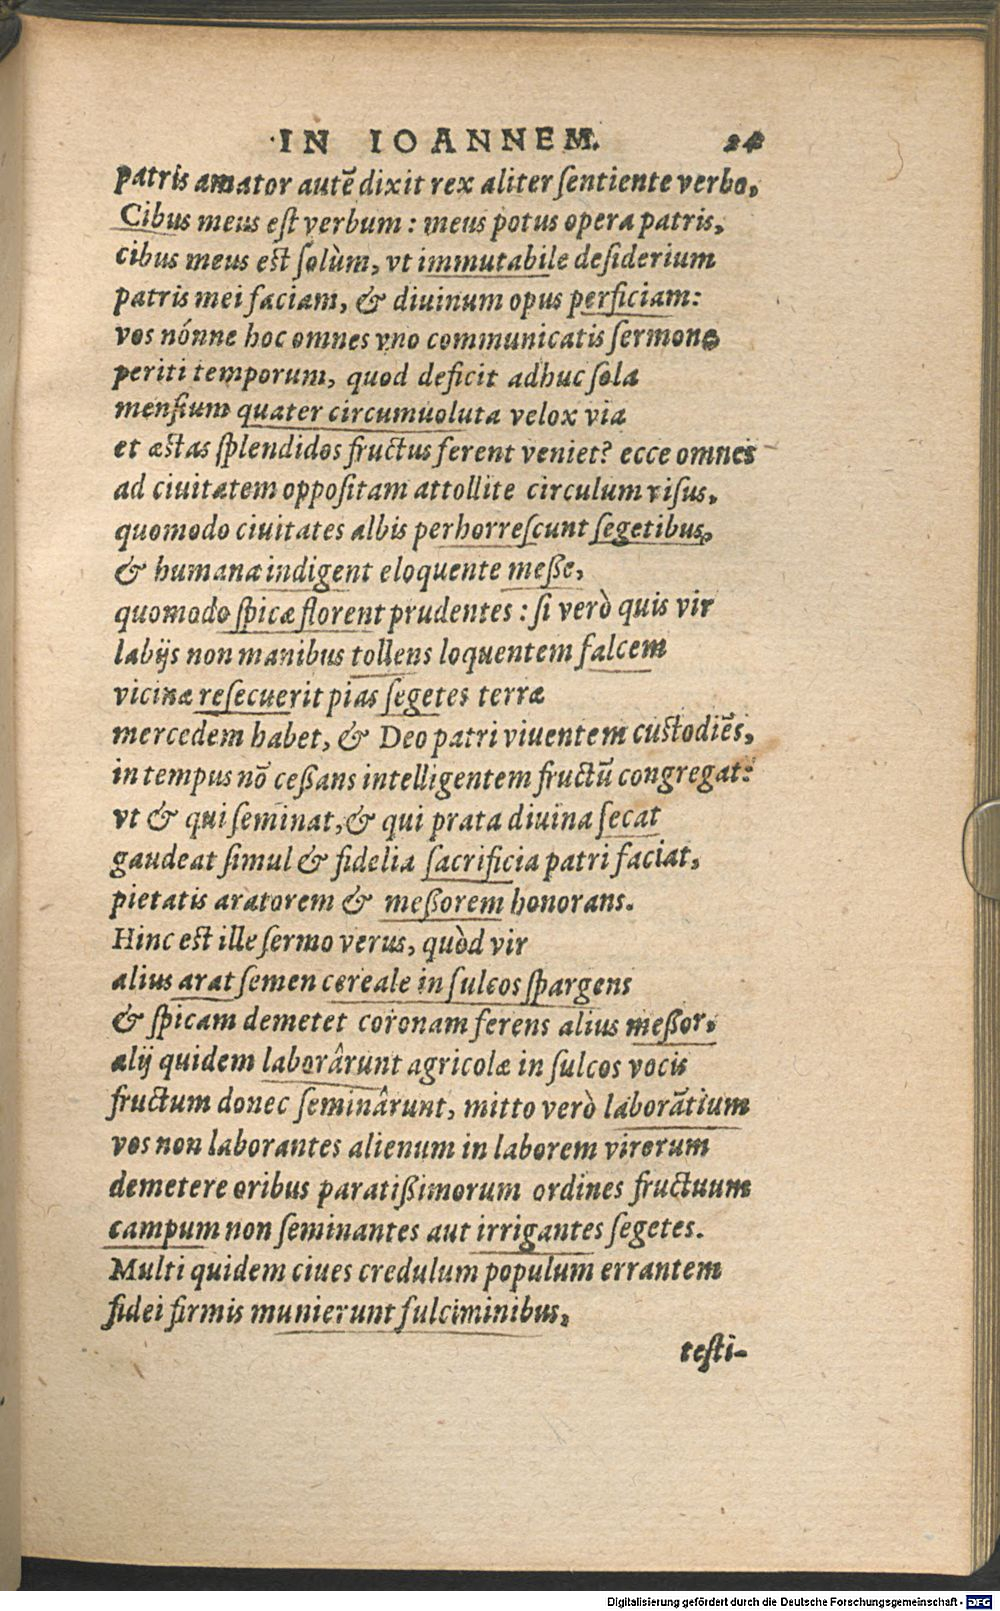 IN IOANNEM. 24
patris amator autē dixit rex aliter ſentiente verbo,
Cibus meus eſt verbum : meus potus opera patris,
cibus meus eſt ſolùm, vt immutabile deſiderium
patris mei faciam, & diuinum opus perficiam:
vos nónne hoc omnes vno communicatis ſermone
periti temporum, quod deficit adhuc ſola
menſium quater circumuoluta velox via
et æſtas ſplendidos fructus ferent veniet? ecce omnes
ad ciuitatem oppoſitam attollite circulum viſus,
quomodo ciuitates albis perhorreſcunt ſegetibus,
& humana indigent eloquente meſſe,
quomodo ſpicæ florent prudentes : ſi verò quis vir
labijs non manibus tollens loquentem falcem
vicinæ reſecuerit pias ſegetes terræ
mercedem habet, & Deo patri viuentem cuſtodiēs,
in tempus nō ceſſans intelligentem fructū congregat:
vt & qui ſeminat, & qui prata diuina ſecat
gaudeat ſimul & fidelia ſacrificia patri faciat,
pietatis aratorem & meſſorem honorans.
Hinc eſt ille ſermo verus, quòd vir
alius arat ſemen cereale in ſulcos ſpargens
& ſpicam demetet coronam ferens alius meſſor,
alij quidem laborârunt agricolæ in ſulcos vocis
fructum donec ſeminârunt, mitto verò laborātium
vos non laborantes alienum in laborem virorum
demetere oribus paratiſſimorum ordines fructuum
campum non ſeminantes aut irrigantes ſegetes.
Multi quidem ciues credulum populum errantem
fidei firmis munierunt fulciminibus,
teſti-
Digitalisierung gefördert durch die Deutsche Forschungsgemeinschaft - DFG